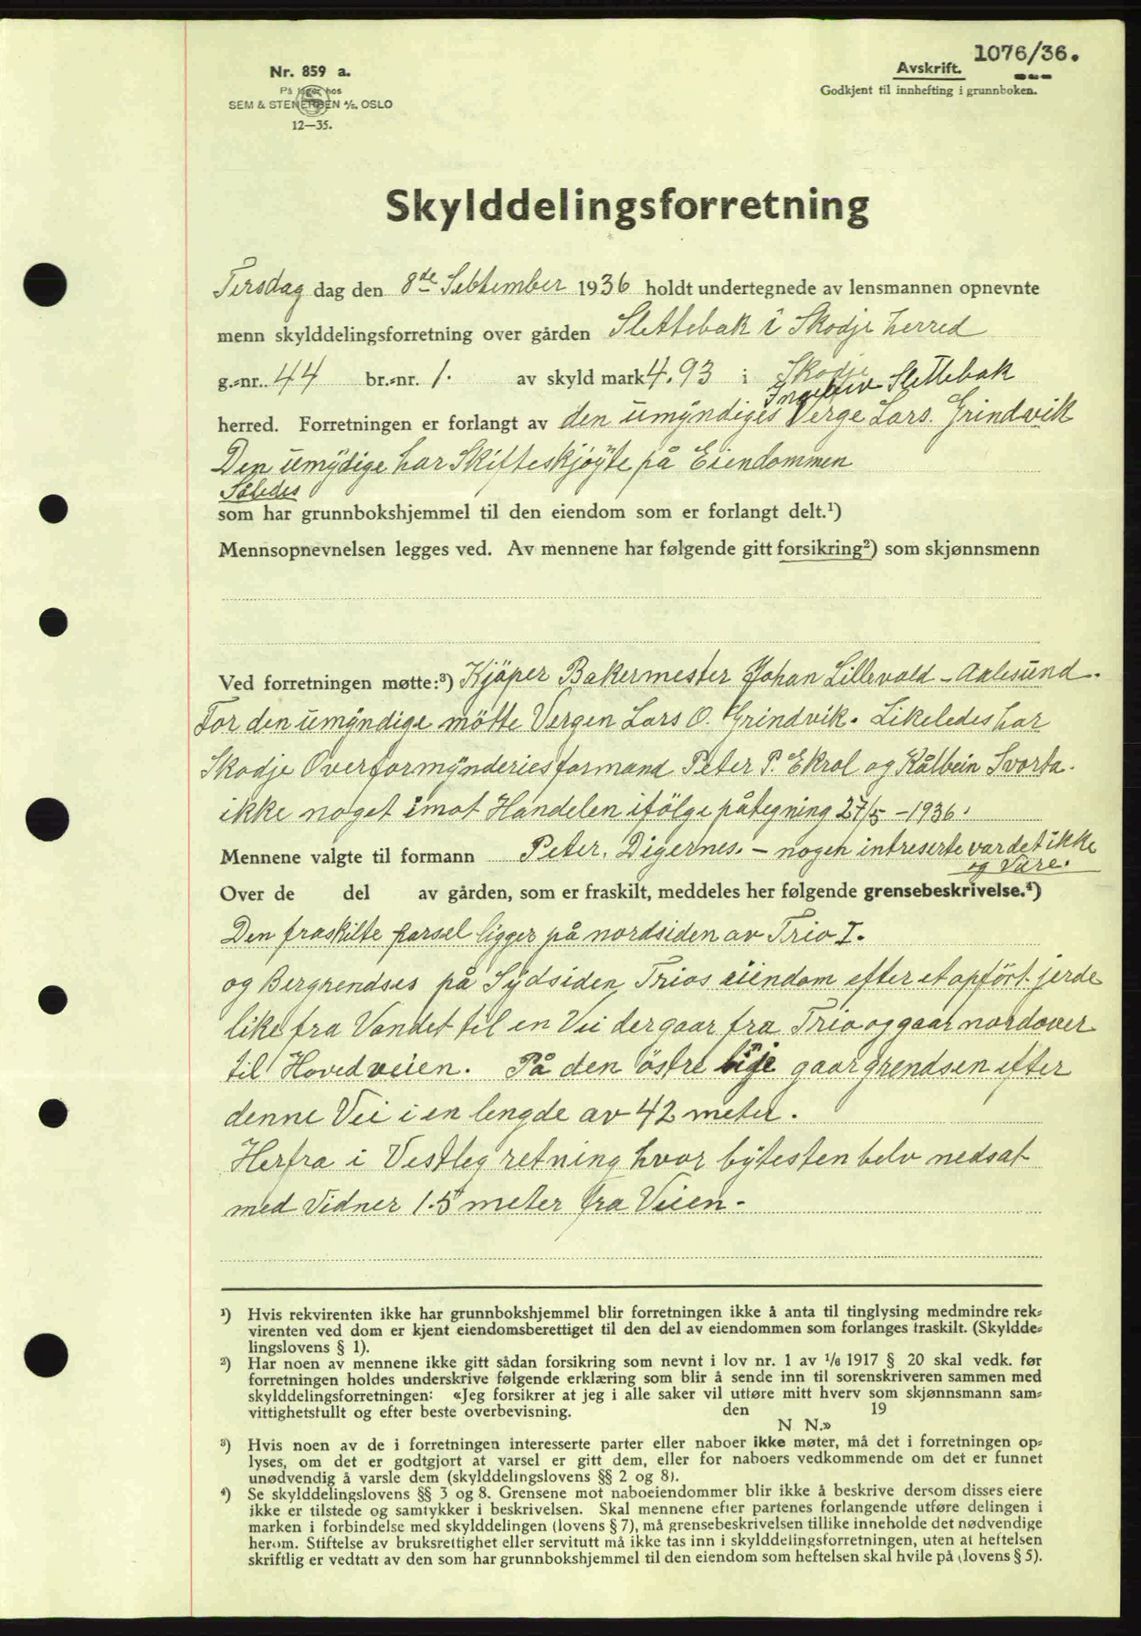 Nr. 859 a.
På lager hos
SEM & STENERSEN A/S. OSLO
12—35.
1076/36.
Avskrift.
Godkjent til innhefting i grunnboken.
Skylddelingsforretning
Tirsdag dag den 8de September 1936 holdt undertegnede av lensmannen opnevnte
menn skylddelingsforretning over gården Slettebak i Skodje herred
g.=nr. 44 br.=nr. 1. av skyld mark 4.93 i Skodje
Slettebak
herred. Forretningen er forlangt av den umyndiges Verge Lars. Grindvik
Den umydige har Skifteskjøyte på Eiendommen
Således
som har grunnbokshjemmel til den eiendom som er forlangt delt.¹)
Mennsopnevnelsen legges ved. Av mennene har følgende gitt forsikring²) som skjønnsmenn
Ved forretningen møtte:³) Kjöper Bakermester Johan Lillevold - Aalesund.
For den umyndige mötte Vergen Lars O. Grindvik. Likeledes har
Skodje Overformynderies formand Peter P. Ekrol og Kålbein Svorta.
ikke noget imot Handelen ifölge påtegning 27/5 - 1936.
Mennene valgte til formann Peter. Digernes. - nogen intreserte var det ikke
og Være.
Over de del av gården, som er fraskilt, meddeles her følgende grensebeskrivelse.⁴)
Den fraskilte parsel ligger på nordsiden av Trio I.
og Bergrendses på Sydsiden Trios eiendom efter et opfört jerde
like fra Vandet til en Vei der gaar fra Trio og gaar nordover
til Hovedveien. På den östre gaar grendsen efter
denne Vei i en lengde av 42 meter.
Herfra i Vestleg retning hvor bytesten belv nedsat
med Vidner 1.5 meter fra Veien -
¹) Hvis rekvirenten ikke har grunnbokshjemmel blir forretningen ikke å anta til tinglysing medmindre rek=
virenten ved dom er kjent eiendomsberettiget til den del av eiendommen som forlanges fraskilt. (Skyldde=
lingslovens § 1).
²) Har noen av mennene ikke gitt sådan forsikring som nevnt i lov nr. 1 av 1/6 1917 § 20 skal vedk. før
forretningen holdes underskrive følgende erklæring som blir å sende inn til sorenskriveren sammen med
skylddelingsforretningen: «Jeg forsikrer at jeg i alle saker vil utføre mitt hverv som skjønnsmann sam=
vittighetsfullt og efter beste overbevisning. den 19
N N.»
³) Hvis noen av de i forretningen interesserte parter eller naboer ikke møter, må det i forretningen op=
lyses, om det er godtgjort at varsel er gitt dem, eller for naboers vedkommende om det er funnet
unødvendig å varsle dem (skylddelingslovens §§ 2 og 8).
⁴) Se skylddelingslovens §§ 3 og 8. Grensene mot naboeiendommer blir ikke å beskrive dersom disses eiere
ikke er tilstede og samtykker i beskrivelsen. Skal mennene efter partenes forlangende utføre delingen i
marken i forbindelse med skylddelingen (lovens § 7), må grensebeskrivelsen tillike inneholde det nødvendige
herom. Stiftelse av bruksrettighet eller servitutt må ikke tas inn i skylddelingsforretningen, uten at heftelsen
skriftlig er vedtatt av den som har grunnbokshjemmel til den eiendom som heftelsen skal hvile på (lovens § 5).